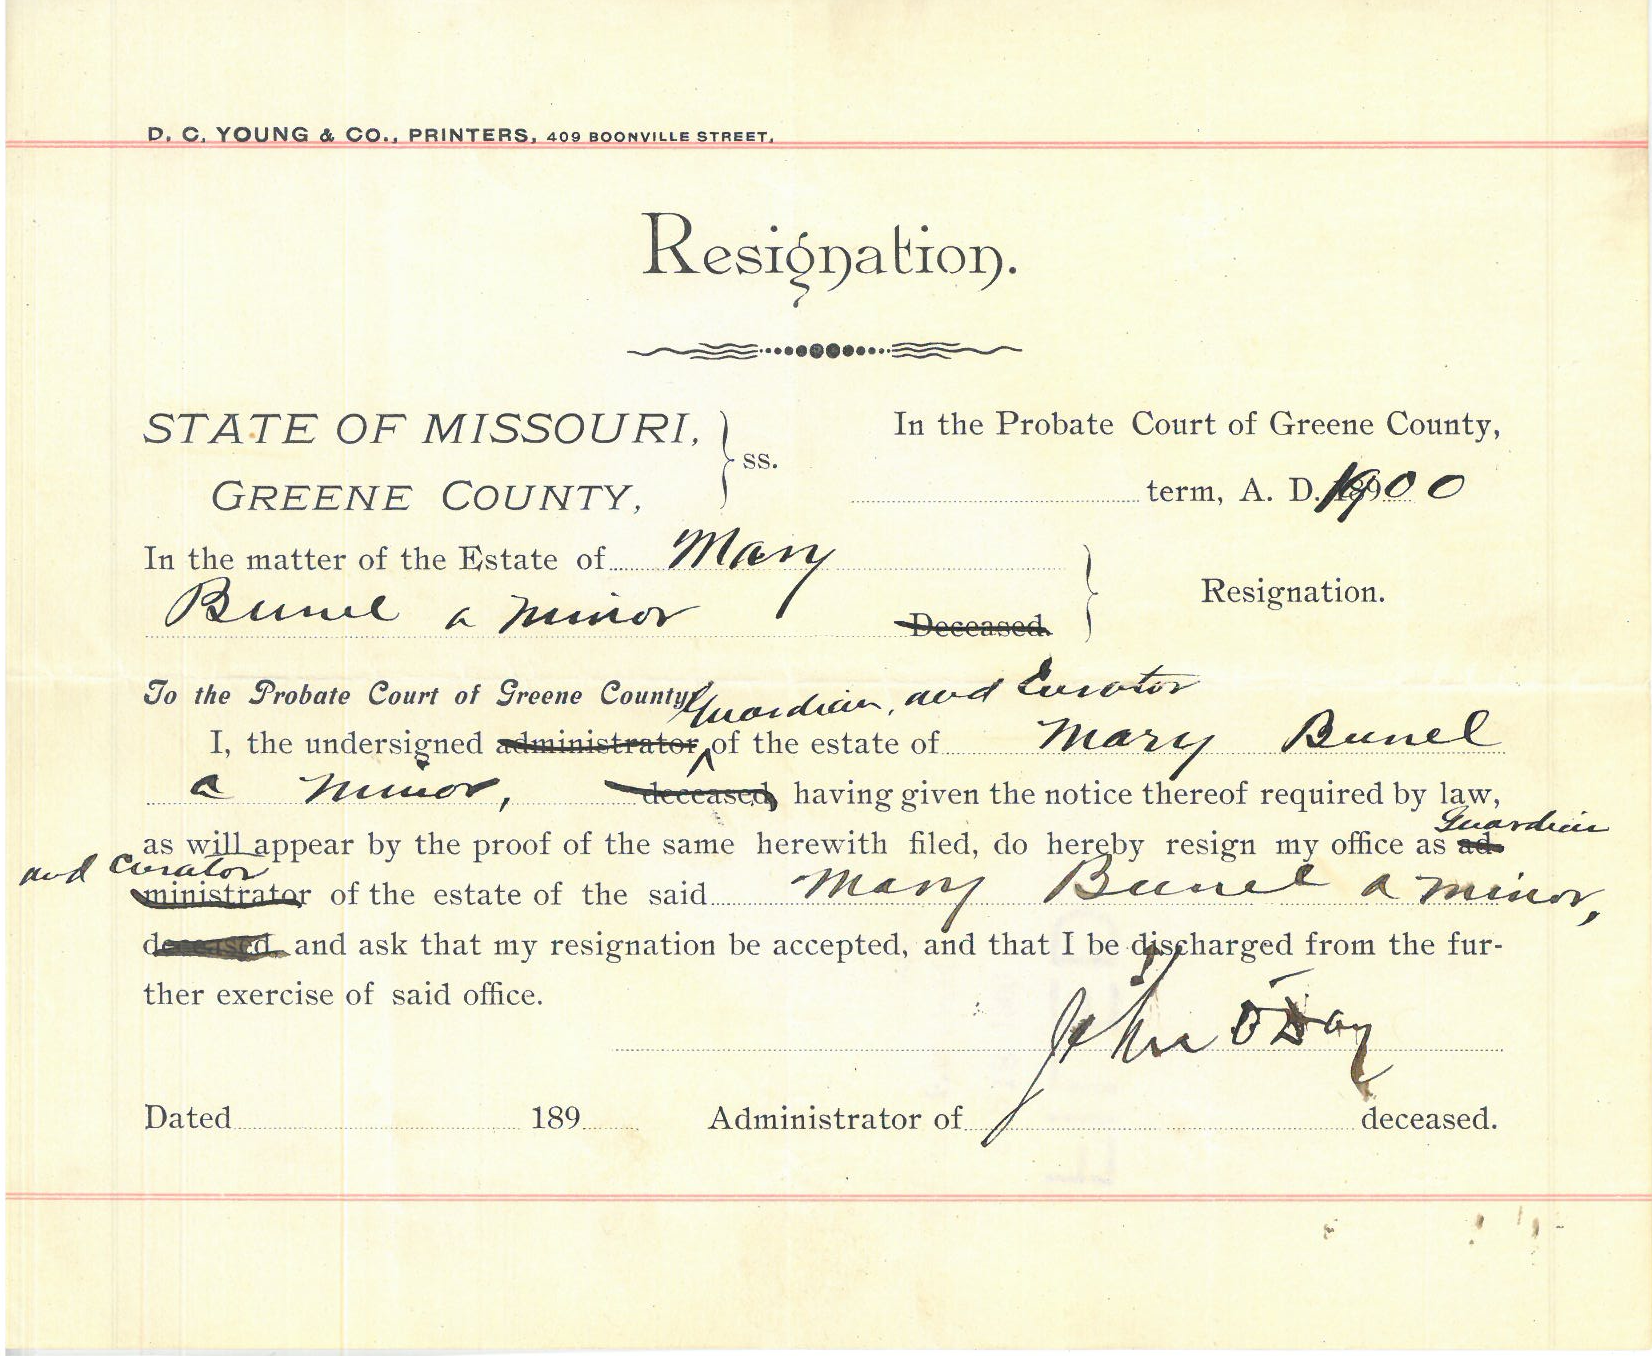 D. C. YOUNG & CO., PRINTERS, 409 BOONVILLE STREET.
Resignation.
STATE OF MISSOURI, } ss. In the Probate Court of Greene County,
GREENE COUNTY, term, A. D. 1900
In the matter of the Estate of Mary
Bunel a minor Deceased. } Resignation.
To the Probate Court of Greene County Guardian, and Curator
I, the undersigned administrator of the estate of Mary Bunel
a minor, deceased, having given the notice thereof required by law,
as will appear by the proof of the same herewith filed, do hereby resign my office as ad- Guardian
and Curator
ministrator of the estate of the said Mary Bunel a minor,
deceased, and ask that my resignation be accepted, and that I be discharged from the fur-
ther exercise of said office.
John O'Day
Dated 189 Administrator of deceased.